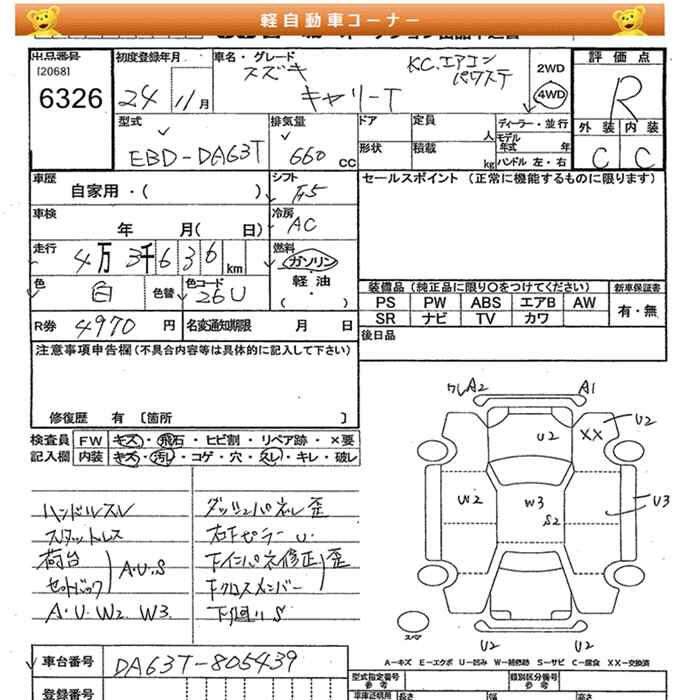 軽自動車コーナー
出品番号
[2068]
6326
初度登録年月
24 11月
車名・グレード
スズキ
キャリーT
KC.エアコン
パワステ
2WD
4WD
評価点
R
外装 内装
C C
型式
EBD-DA63T
排気量
660 cc
ドア
定員
人
形状
積載
kg
ディーラー・並行
モデル
年式 年
ハンドル 左・右
車歴
自家用・( )
シフト
F5
セールスポイント (正常に機能するものに限ります)
車検
年 月( 日)
冷房
AC
走行
4万 3千636 km
燃料
ガソリン
軽油
( ・ )
色
白
色替
色コード
26U
装備品 (純正品に限り〇をつけてください)
新車保証書
PS PW ABS エアB AW
SR ナビ TV カワ
有・無
R券 4970 円
名変通知期限 月 日
後日品
注意事項申告欄 (不具合内容等は具体的に記入して下さい)
修復歴 有 [箇所 ]
検査員 FW キズ・飛石・ヒビ割・リペア跡・×要
記入欄 内装 キズ・汚れ・コゲ・穴・スレ・キレ・破レ
ハンドルスレ
スタットレス
荷台
セットバック
A.U.S
A.U.W2.W3.
ダッシュパネル歪
右Fピラー U.
Fインパネ修正歪
Fクロスメンバー
下回りS
ワレA2
A1
U2
U2
XX
W2
W3
S2
U3
U2
U2
スペア
A-キズ E-エクボ U-凹み W-補修跡 S-サビ C-腐食 XX-交換済
車台番号
DA63T-805439
登録番号
型式指定番号
参考
類別区分番号
参考
長さ
幅
高さ